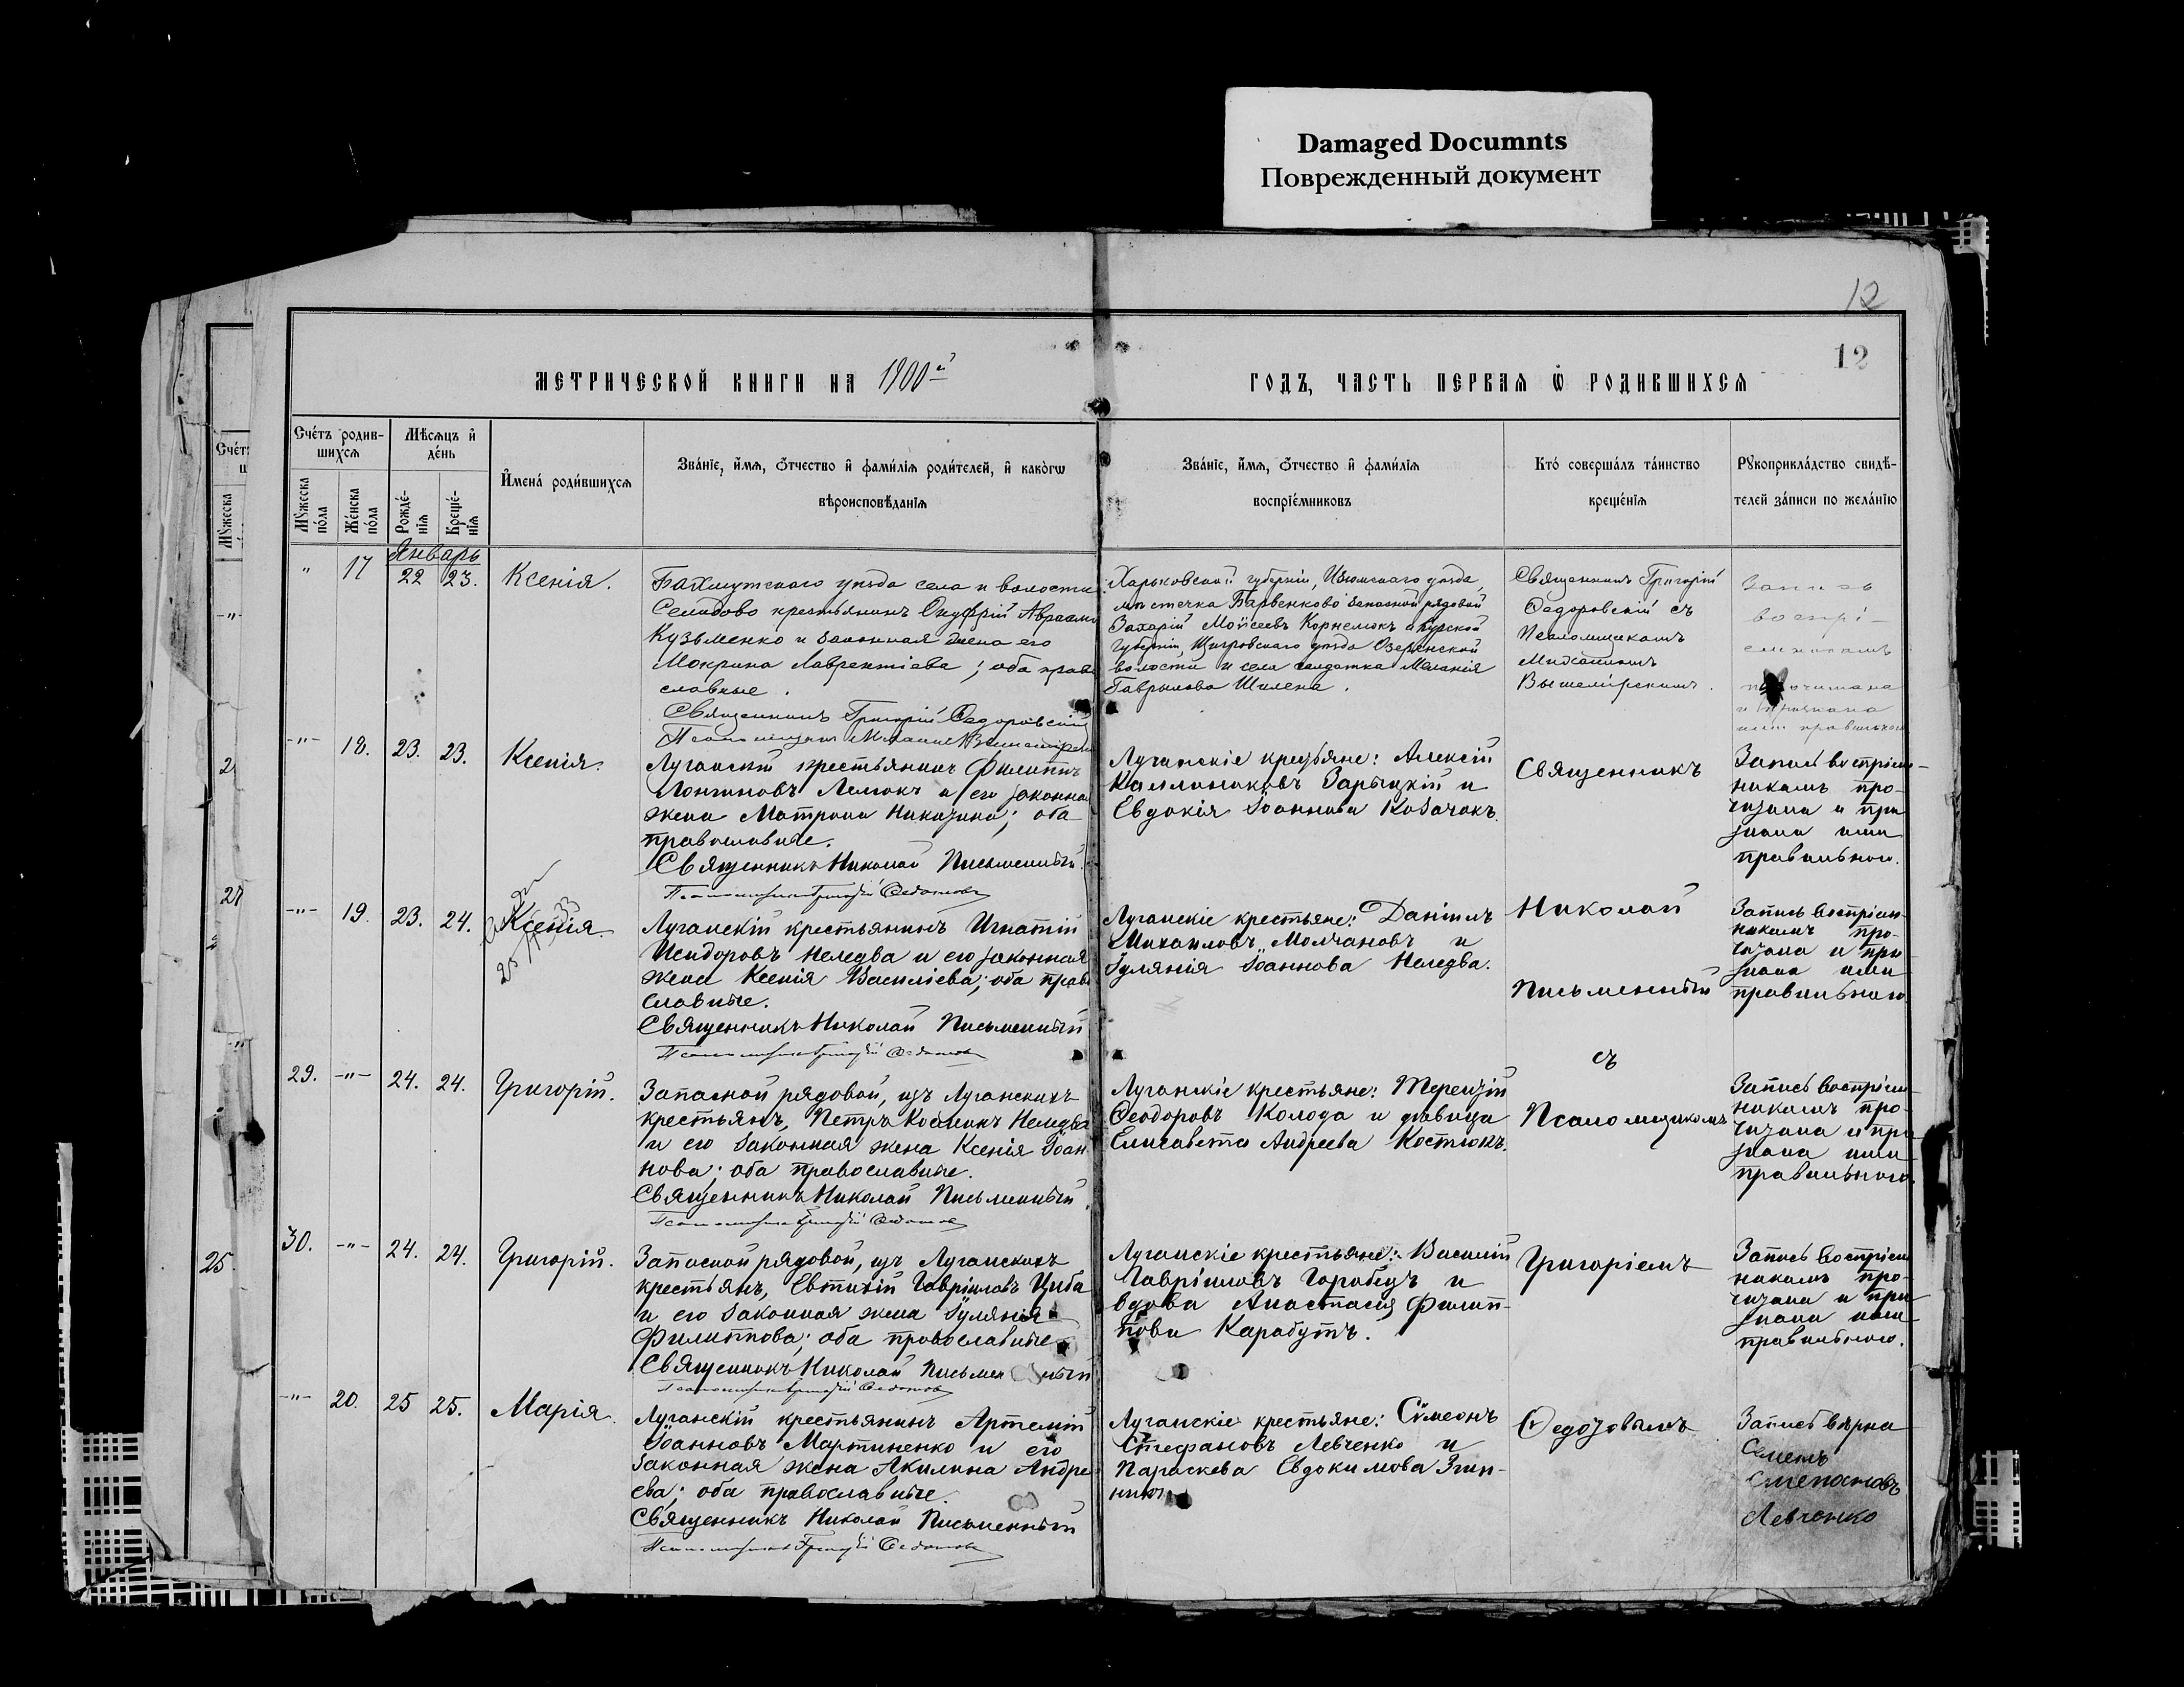 Damaged Documnts
Поврежденный документ
12
12
МЕТРИЧЕСКОЙ КНИГИ НА 1900й
ГОДЪ, ЧАСТЬ ПЕРВАЯ Ѡ РОДИВШИХСЯ
Счетъ родив-
шихся
Мѣсяцъ и
день
Имена родившихся
Званіе, имя, отчество и фамилія родителей, и какогѡ
вѣроисповѣданія
Званіе, имя, отчество и фамилія
воспріемниковъ
Кто совершалъ таинство
крещенія
Рукоприкладство свидѣ-
телей записи по желанію
Мужеска
пола
Женска
пола
Рожде-
нія
Креще-
нія
Январь
" 17 22 23. Ксенія.
Бахмутскаго уѣзда села и волости
Селидово крестьянинъ Онуфрій
Кузьменко и законная жена его
Мокрина Лаврентіева; оба право
славные.
Священникъ Григорій Федоровскій
Харьковской губерніи, Изюмскаго уѣзда,
мѣстечка Барвенково запасной рядовой
Захарій Моѵсеевъ Корнелюкъ и Курской
губерніи, Щигровскаго уѣзда Озеренской
волости и села солдатка Меланія
Гаврилова Шилена.
Священникъ Григорій
Федоровскій съ
Псаломщикомъ
Михаиломъ
Запись
воспрі-
емникамъ
прочитана
и признана
ими правильною
-"- 18. 23. 23. Ксенія.
Луганскій крестьянинъ Филиппъ
Лонгиновъ Лемокъ и его законная
жена Матрона Никитина; оба
православные.
Священникъ Николай Письменный.
Луганскіе крестьяне: Алексій
Зарыцкій и
Евдокія Іоаннова Козачокъ.
Священникъ
Запись воспріем-
никамъ про-
читана и при
знана ими
правильною.
-"- 19. 23. 24. Ксенія.
Луганскій крестьянинъ Игнатій
Исидоровъ Неледва и его законная
жена Ксенія Василіева; оба право
славные.
Священникъ Николай Письменный
Луганскіе крестьяне: Даніилъ
Михаиловъ Молчановъ и
Іуліянія Іоаннова Неледва.
Николай
Письменный
Запись воспріем-
никамъ про-
читана и при
знана ими
правильною.
29. -"- 24. 24. Григорій.
Запасной рядовой, изъ Луганскихъ
крестьянъ, Петръ Неледва
и его законная жена Ксенія Іоан
нова; оба православные.
Священникъ Николай Письменный.
Луганскіе крестьяне: Терентій
Ѳеодоровъ Колода и дѣвица
Елисавета Андреева Костюкъ.
съ
Псаломщикомъ
Запись воспріем
никамъ про-
читана и при
знана ими
правильною.
30. -"- 24. 24. Григорій.
Запасной рядовой, изъ Луганскихъ
крестьянъ, Евтихій Гавріиловъ Цыба
и его законная жена Іуліянія
Филиппова; оба православные
Священникъ Николай Письменный
Луганскіе крестьяне: Василій
Гавріиловъ Горобецъ и
вдова Анастасія Филип-
пова Карабутъ.
Григоріемъ
Запись воспріем
никамъ про-
читана и при
знана ими
правильною.
-"- 20. 25 25. Марія.
Луганскій крестьянинъ Артемій
Іоанновъ Мартиненко и его
законная жена Акилина Андре
ева; оба православные.
Священникъ Николай Письменный
Луганскіе крестьяне: Сѵмеонъ
Стефановъ Левченко и
Параскева Евдокимова
Федотовымъ
Запись вѣрна
Семенъ
Степановъ
Левченко
25.